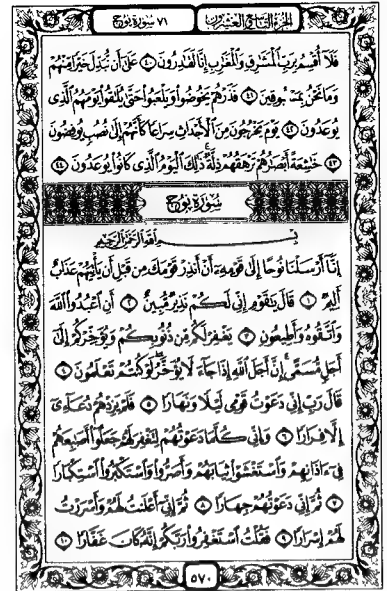 الجزء التاسع والعشرون
٧١ سورة نوح
فَلَآ أُقۡسِمُ بِرَبِّ ٱلۡمَشَٰرِقِ وَٱلۡمَغَٰرِبِ إِنَّا لَقَٰدِرُونَ ٤٠ عَلَىٰٓ أَن نُّبَدِّلَ خَيۡرٗا مِّنۡهُمۡ
وَمَا نَحۡنُ بِمَسۡبُوقِينَ ٤١ فَذَرۡهُمۡ يَخُوضُواْ وَيَلۡعَبُواْ حَتَّىٰ يُلَٰقُواْ يَوۡمَهُمُ ٱلَّذِي
يُوعَدُونَ ٤٢ يَوۡمَ يَخۡرُجُونَ مِنَ ٱلۡأَجۡدَاثِ سِرَاعٗا كَأَنَّهُمۡ إِلَىٰ نُصُبٖ يُوفِضُونَ
٤٣ خَٰشِعَةً أَبۡصَٰرُهُمۡ تَرۡهَقُهُمۡ ذِلَّةٞۚ ذَٰلِكَ ٱلۡيَوۡمُ ٱلَّذِي كَانُواْ يُوعَدُونَ ٤٤
سُورَةُ نُوحٍ
بِسۡمِ ٱللَّهِ ٱلرَّحۡمَٰنِ ٱلرَّحِيمِ
إِنَّآ أَرۡسَلۡنَا نُوحًا إِلَىٰ قَوۡمِهِۦٓ أَنۡ أَنذِرۡ قَوۡمَكَ مِن قَبۡلِ أَن يَأۡتِيَهُمۡ عَذَابٌ
أَلِيمٞ ١ قَالَ يَٰقَوۡمِ إِنِّي لَكُمۡ نَذِيرٞ مُّبِينٌ ٢ أَنِ ٱعۡبُدُواْ ٱللَّهَ
وَٱتَّقُوهُ وَأَطِيعُونِ ٣ يَغۡفِرۡ لَكُم مِّن ذُنُوبِكُمۡ وَيُؤَخِّرۡكُمۡ إِلَىٰٓ
أَجَلٖ مُّسَمًّىۚ إِنَّ أَجَلَ ٱللَّهِ إِذَا جَآءَ لَا يُؤَخَّرُۖ لَوۡ كُنتُمۡ تَعۡلَمُونَ ٤
قَالَ رَبِّ إِنِّي دَعَوۡتُ قَوۡمِي لَيۡلٗا وَنَهَارٗا ٥ فَلَمۡ يَزِدۡهُمۡ دُعَآءِيٓ
إِلَّا فِرَارٗا ٦ وَإِنِّي كُلَّمَا دَعَوۡتُهُمۡ لِتَغۡفِرَ لَهُمۡ جَعَلُوٓاْ أَصَٰبِعَهُمۡ
فِيٓ ءَاذَانِهِمۡ وَٱسۡتَغۡشَوۡاْ ثِيَابَهُمۡ وَأَصَرُّواْ وَٱسۡتَكۡبَرُواْ ٱسۡتِكۡبَارٗا
٧ ثُمَّ إِنِّي دَعَوۡتُهُمۡ جِهَارٗا ٨ ثُمَّ إِنِّيٓ أَعۡلَنتُ لَهُمۡ وَأَسۡرَرۡتُ
لَهُمۡ إِسۡرَارٗا ٩ فَقُلۡتُ ٱسۡتَغۡفِرُواْ رَبَّكُمۡ إِنَّهُۥ كَانَ غَفَّارٗا ١٠
٥٧٠